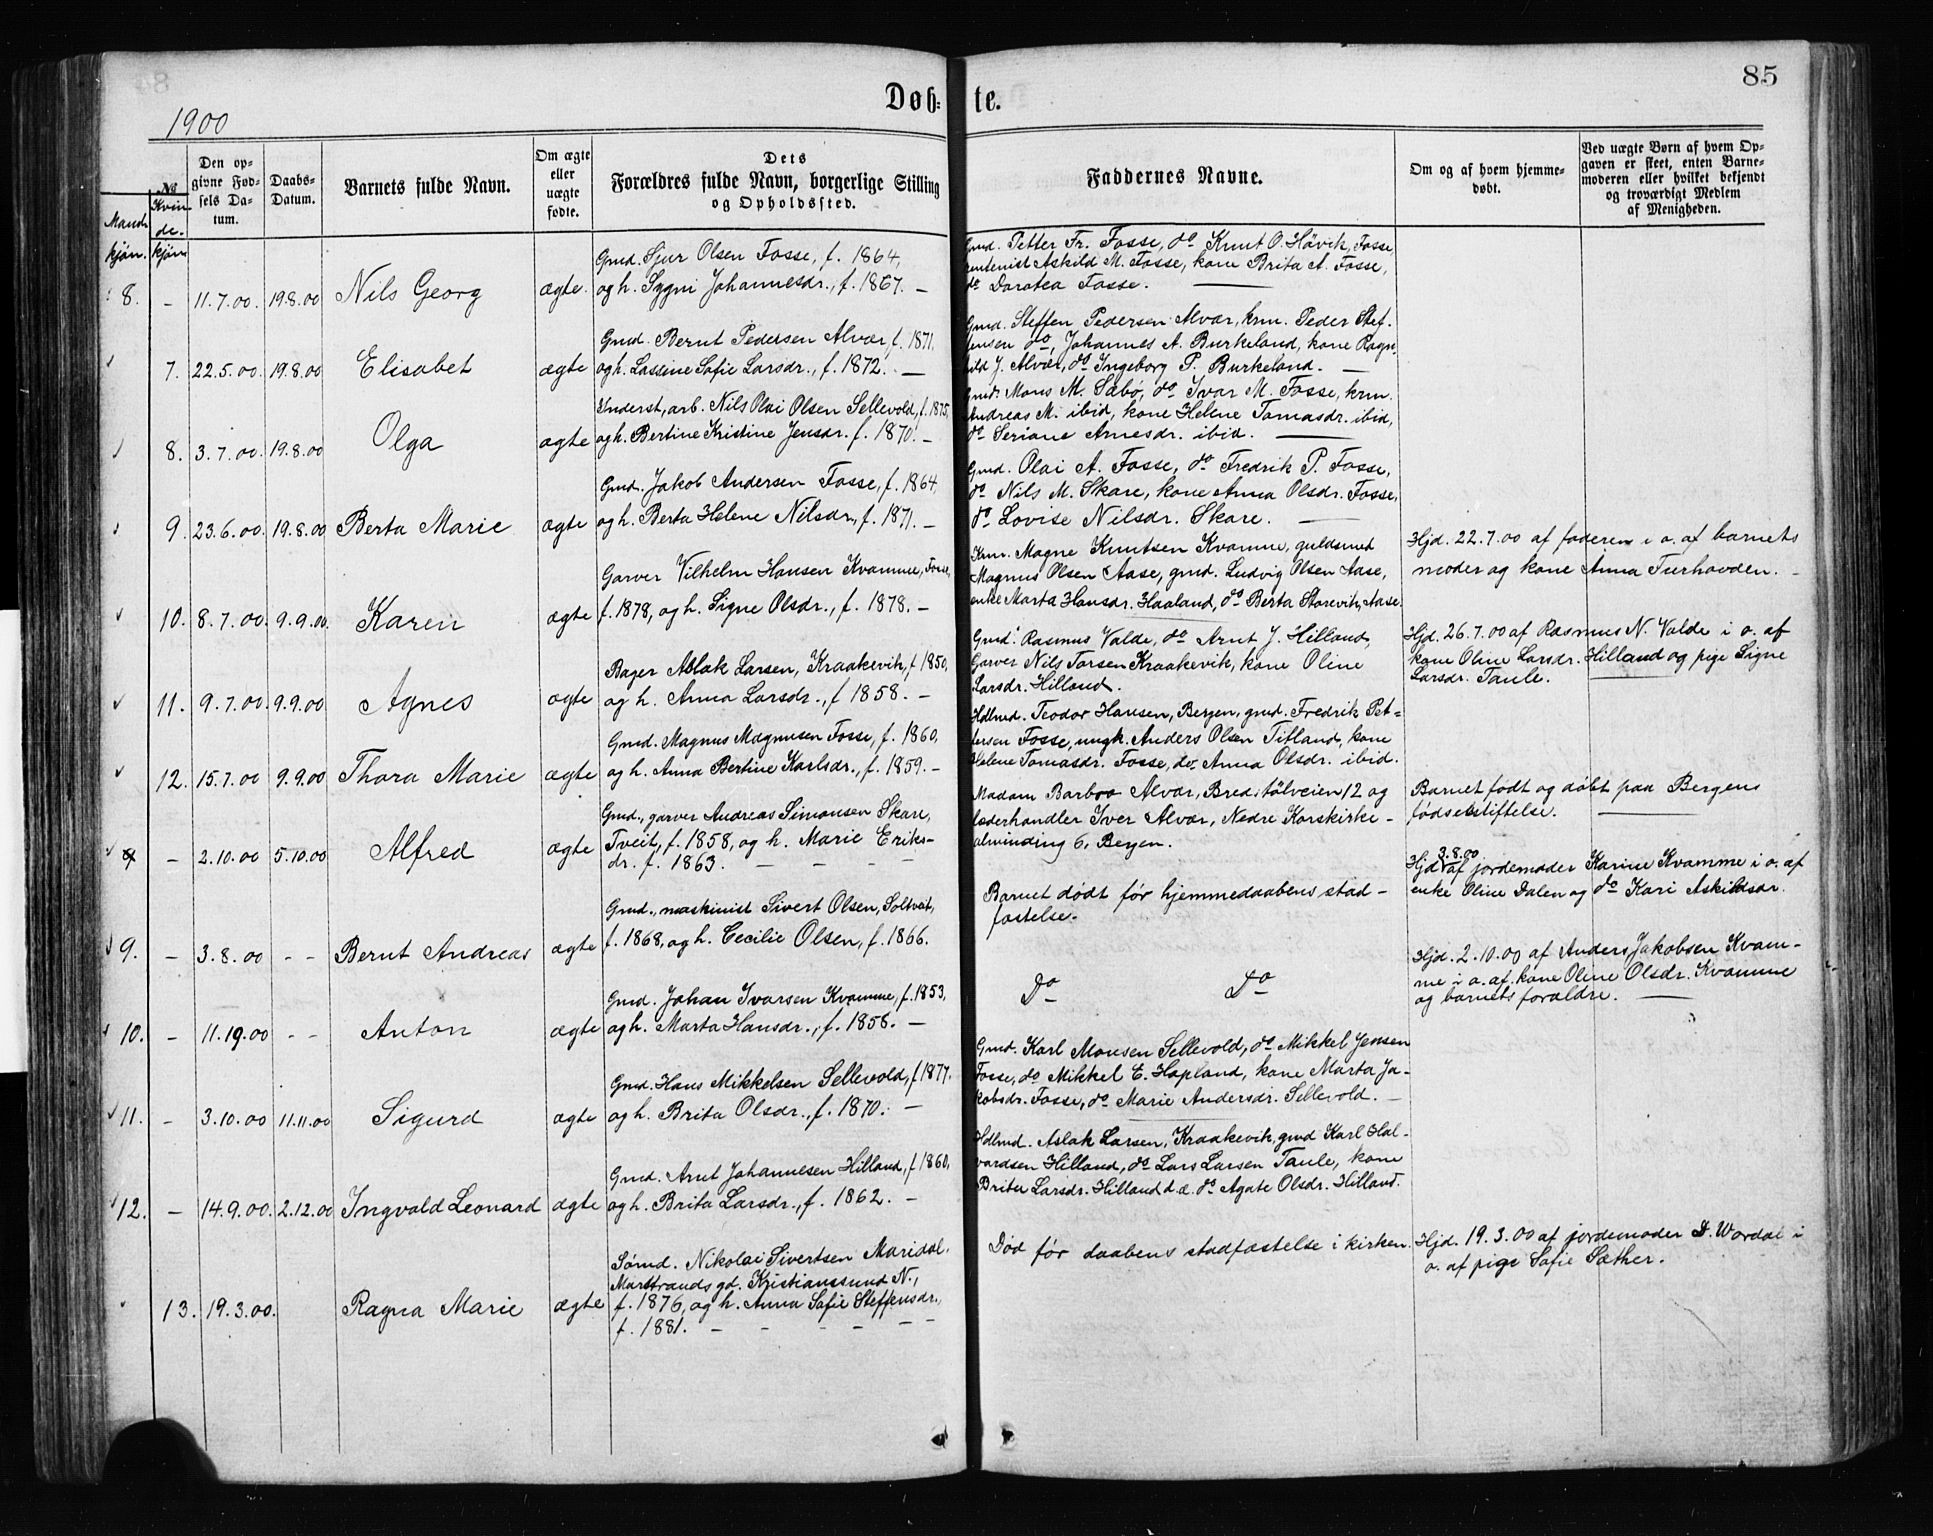 85
Døbte.
1900
No
Mandkjøn.
Kvindekjøn
Den opgivne Fødsels Datum.
Daabs-Datum.
Barnets fulde Navn.
Om ægte eller uægte fødte.
Dets Forældres fulde Navn, borgerlige Stilling og Opholdssted.
Faddernes Navne.
Om og af hvem hjemmedøbt.
Ved uægte Børn af hvem Opgaven er skeet, enten Barnemoderen eller hvilket bekjendt og troværdigt Medlem af Menigheden.
Gmd. Sjur Olsen Fosse, f. 1864,
8. - 11.7.00. 19.8.00 Nils Georg ægte. og h. Sygni Johannesdr., f. 1867. -
Gmd. Petter Fr. Fosse, do Knut O. Høvik, Fosse
Askild M. Fosse, kone Brita A. Fosse,
do Dorotea Fosse.
Gmd. Bernt Pedersen Alvær, f. 1871,
7. 22.5.00. 19.8.00 Elisabet ægte og h. Lassine Sofie Larsdr., f. 1872. -
Gmd. Steffen Pedersen Alvær, krm. Peder Stef-
fensen do, Johannes A. Burkeland, kone Ragn-
hild J. Alvær, do Ingeborg P. Burkeland. -
Inderst, arb. Nils Olai Olsen Sellevold, f. 1875,
8. 3.7.00. 19.8.00 Olga ægte og h. Bertine Kristine Jensdr. f. 1870. -
Gmd. Mons M. Sæbø, do Ivar M. Fosse, krm.
Andreas M. ibid, kone Helene Tomasdr. ibid,
do Seriane Arnesdr. ibid.
Gmd. Jakob Andersen Fosse, f. 1864,
9. 23.6.00. 19.8.00 Berta Marie ægte og h. Berta Helene Nilsdr., f. 1871. -
Gmd. Olai A. Fosse, do Fredrik P. Fosse,
do Nils M. Skare, kone Anna Olsdr. Fosse,
do Lovise Nilsdr. Skare.
Garver Vilhelm Hansen Kvamme, Fosse,
10. 8.7.00. 9.9.00. Karen ægte f. 1878, og h. Signe Olsdr., f. 1878. -
Krm. Magne Knutsen Kvamme, guldsmed
Magnus Olsen Aase, gmd. Ludvig Olsen Aase,
enke Marta Hansdr. Haaland, do Berta Storevik, Aase.
Hjd. 22.7.00 af faderen i o. af barnets
moder og kone Anna Turhovden. -
Bager Aslak Larsen, Kraakevik, f. 1850,
11. 9.7.00. 9.9.00 Agnes ægte og h. Anna Larsdr., f. 1858. -
Gmd. Rasmus Valde, do Arnt J. Hilland,
Garver Nils Torsen Kraakevik, kone Oline
Larsdr. Hilland.
Hjd. 26.7.00 af Rasmus N. Valde i o. af
kone Oline Larsdr. Hilland og pige Signe
Larsdr. Taule.
Gmd. Magnus Magnusen Fosse, f. 1860,
12. 15.7.00 9.9.00 Thora Marie ægte og h. Anna Bertine Karlsdr., f. 1859. -
Hdlmd. Teodor Hansen, Bergen, gmd. Fredrik Pet-
tersen Fosse, ungk. Anders Olsen Tifland, kone
Helene Tomasdr. Fosse, do Anna Olsdr. ibid.
Gmd., garver Andreas Simonsen Skare,
- 2.10.00 5.10.00 Alfred ægte Tveit, f. 1858, og h. Marie Eriks-
dr. f. 1863. - - -
Madam Barbro Alvær, Bredstølveien 12 og
læderhandler Iver Alvær, Nedre Korskirke-
alminding 6, Bergen.
Barnet født og døbt paa Bergens
fødselsstiftelse.
Gmd., maskinist Sivert Olsen, Soltveit,
9. - 3.8.00 - - Bernt Andreas ægte f. 1868, og h. Cecilie Olsen, f. 1866.
Barnet dødt før hjemmedaabens stad-
fæstelse.
Hjd. 3.8.00 af jordemoder Karine Kvamme i o. af
enke Oline Dalen og do Kari Askildsdr.
Gmd. Johan Ivarsen Kvamme, f. 1853,
10. - 11.19.00 - - Anton ægte og h. Marta Hansdr., f. 1856. -
Do Do
Hjd. 2.10.00 af Anders Jakobsen Kvam-
me i o. af kone Oline Olsdr. Kvamme
og barnets forældre.
Gmd. Hans Mikkelsen Sellevold, f. 1877,
11. - 3.10.00 11.11.00 Sigurd ægte og h. Brita Olsdr., f. 1870. -
Gmd. Karl Monsen Sellevold, do Mikkel Jensen
Fosse, do Mikkel E. Hopland, kone Marta Ja-
kobsdr. Fosse, do Marie Andersdr. Sellevold. -
Gmd. Arnt Johannesen Hilland, f. 1860,
12. - 14.9.00. 2.12.00 Ingvald Leonard ægte og h. Brita Larsdr., f. 1862. -
Hdlmd. Aslak Larsen, Kraakevik, gmd Karl Hal-
vardsen Hilland, do Lars Larsen Taule, kone
Brita Larsdr. Hilland d.æ. do Agate Olsdr. Hilland.
Sømd. Nikolai Sivertsen Maridal,
Marstrands gd. Kristianssund N.,
13. 19.3.00. Ragna Marie ægte f. 1876, og h. Anna Sofie Steffensdr.,
f. 1881. - - - - -
Død før daabens stadfæstelse i kirken.
Hjd. 19.3.00 af jordemoder D. Wardal i
o. af pige Sofie Sæther.